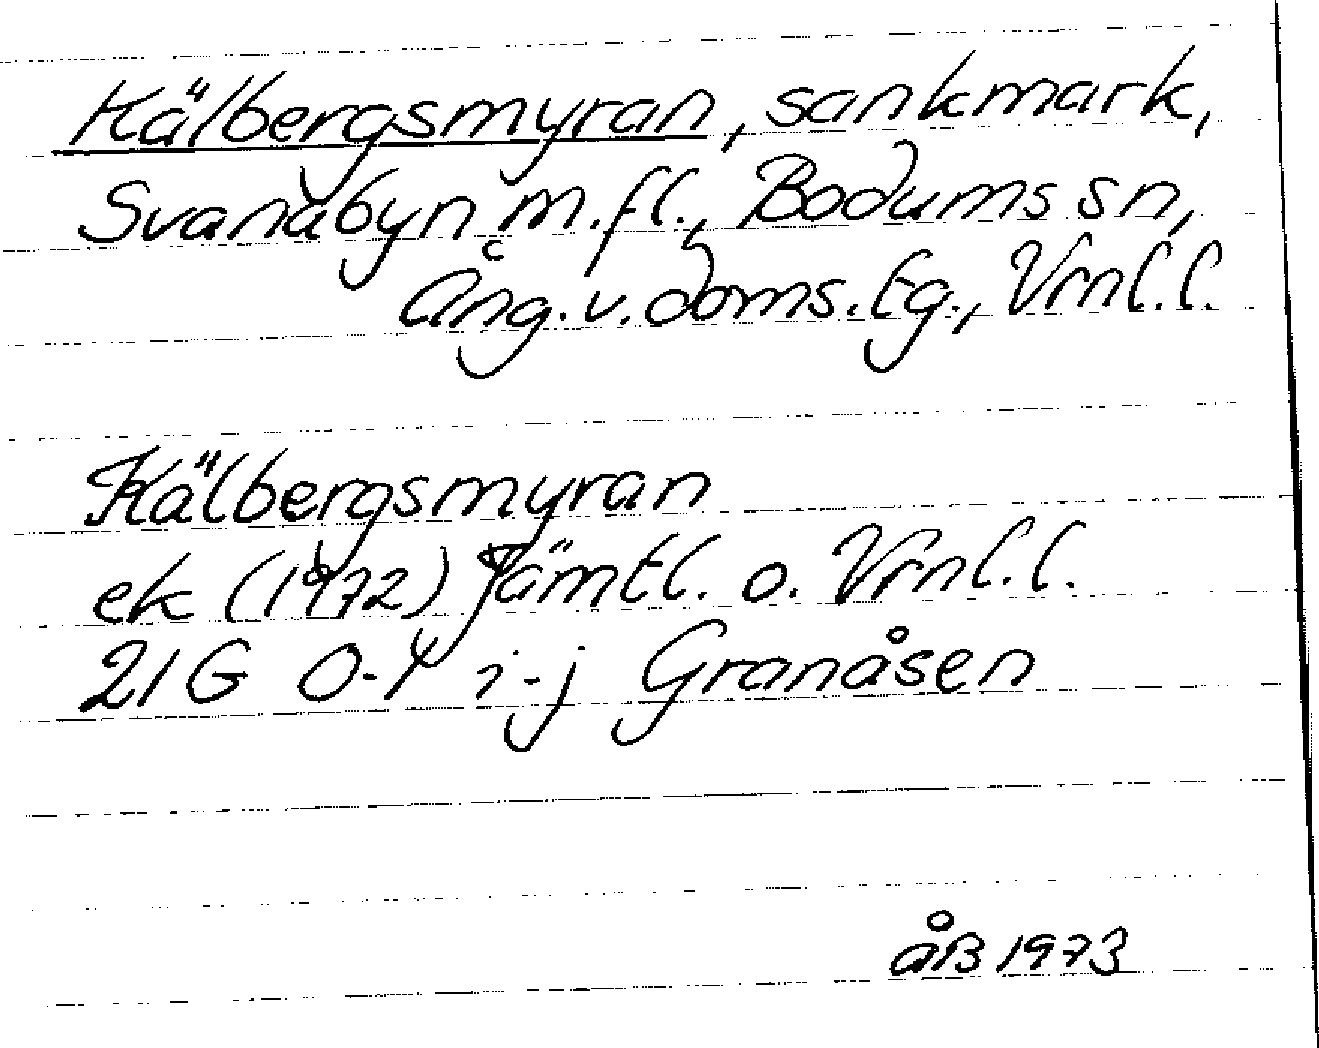 Kälbergsmyran, sankmark,
Svanabyn m.fl., Bodums sn,
Ång. v. doms. tg., Vrnl.l.
Kälbergsmyran
ek (1972) Jämtl. o. Vrnl.l.
21G 0-1 i-j Granåsen
åB 1973